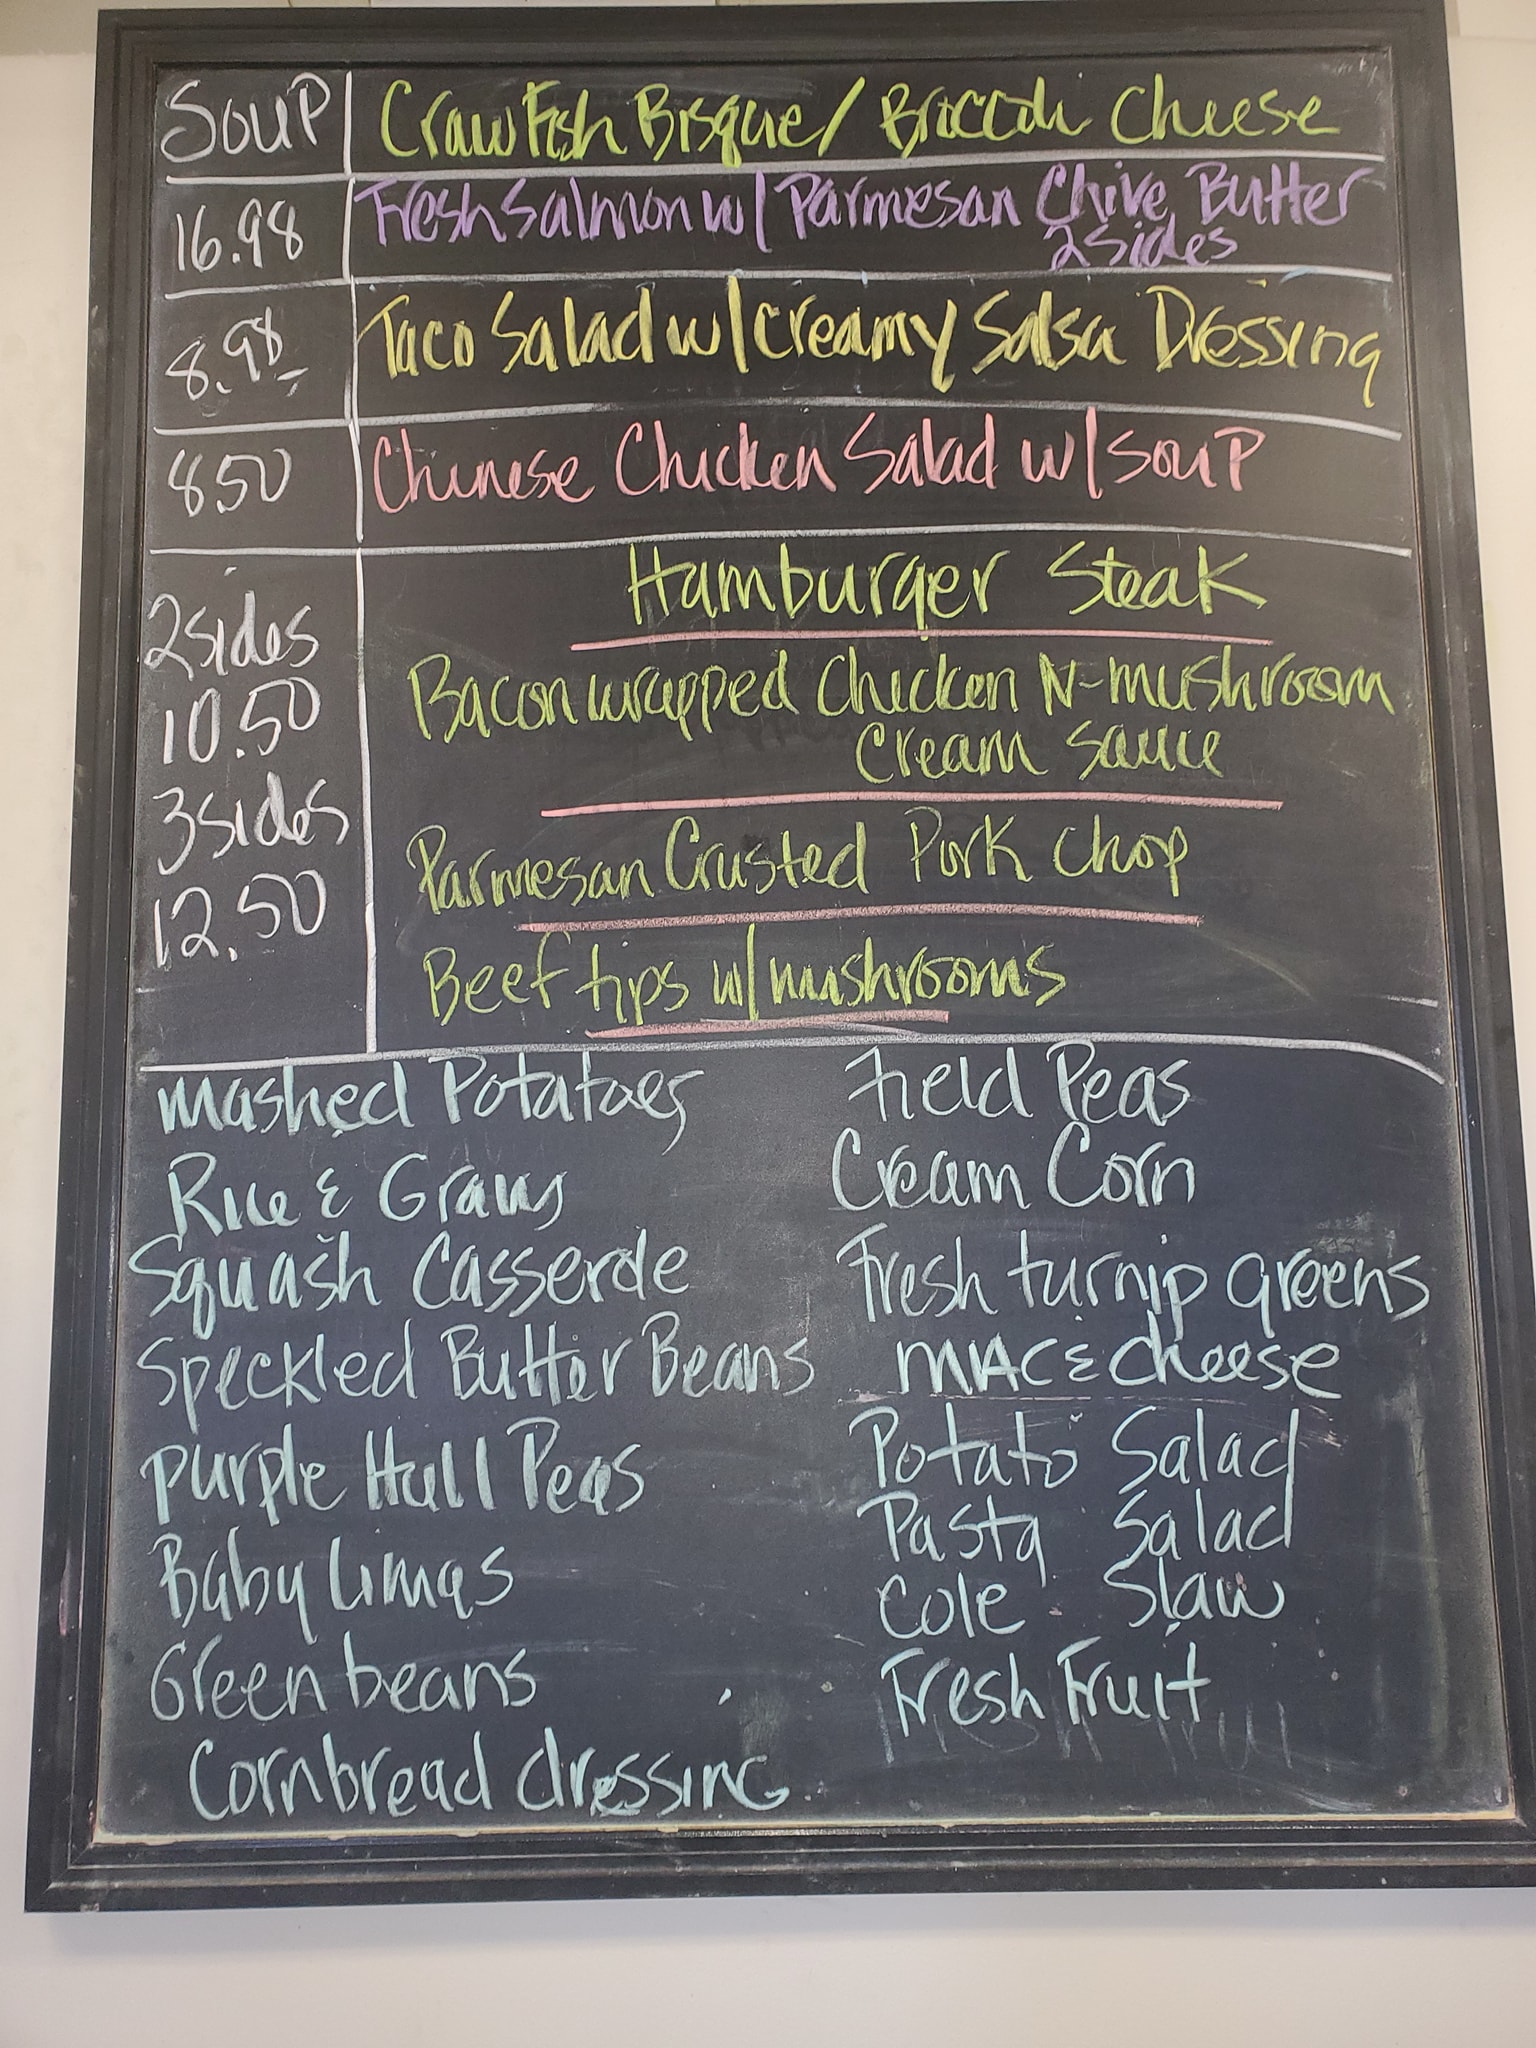 SOUP CrawFish Bisque/ Broccoli Cheese
16.98 Fresh Salmon w/ Parmesan Chive Butter
2 sides
8.98 Taco Salad w/ creamy Salsa Dressing
8.50 Chinese Chicken Salad w/ SOUP
Hamburger Steak
2 sides
10.50
Bacon wrapped Chicken N-mushroom
cream sauce
3 sides
12.50
Parmesan Crusted Pork Chop
Beef tips w/ mushrooms
mashed Potatoes
Field Peas
Rice & Gravy
Cream Corn
Squash Casserole
Fresh turnip greens
Speckled Butter Beans
MAC & cheese
Purple Hull Peas
Potato Salad
Pasta Salad
Baby Limas
Cole Slaw
Green beans
Fresh Fruit
Cornbread dressing